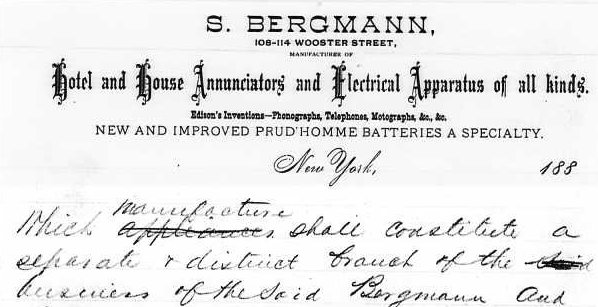 S. BERGMANN,
108-114 WOOSTER STREET,
MANUFACTURER OF
Hotel and House Annunciators and Electrical Apparatus of all kinds.
Edison's Inventions—Phonographs, Telephones, Motographs, &c., &c.
NEW AND IMPROVED PRUD'HOMME BATTERIES A SPECIALTY.
New York, 188
manufacture
Which appliances shall constitute a
separate & distinct branch of the
business of the said Bergmann and